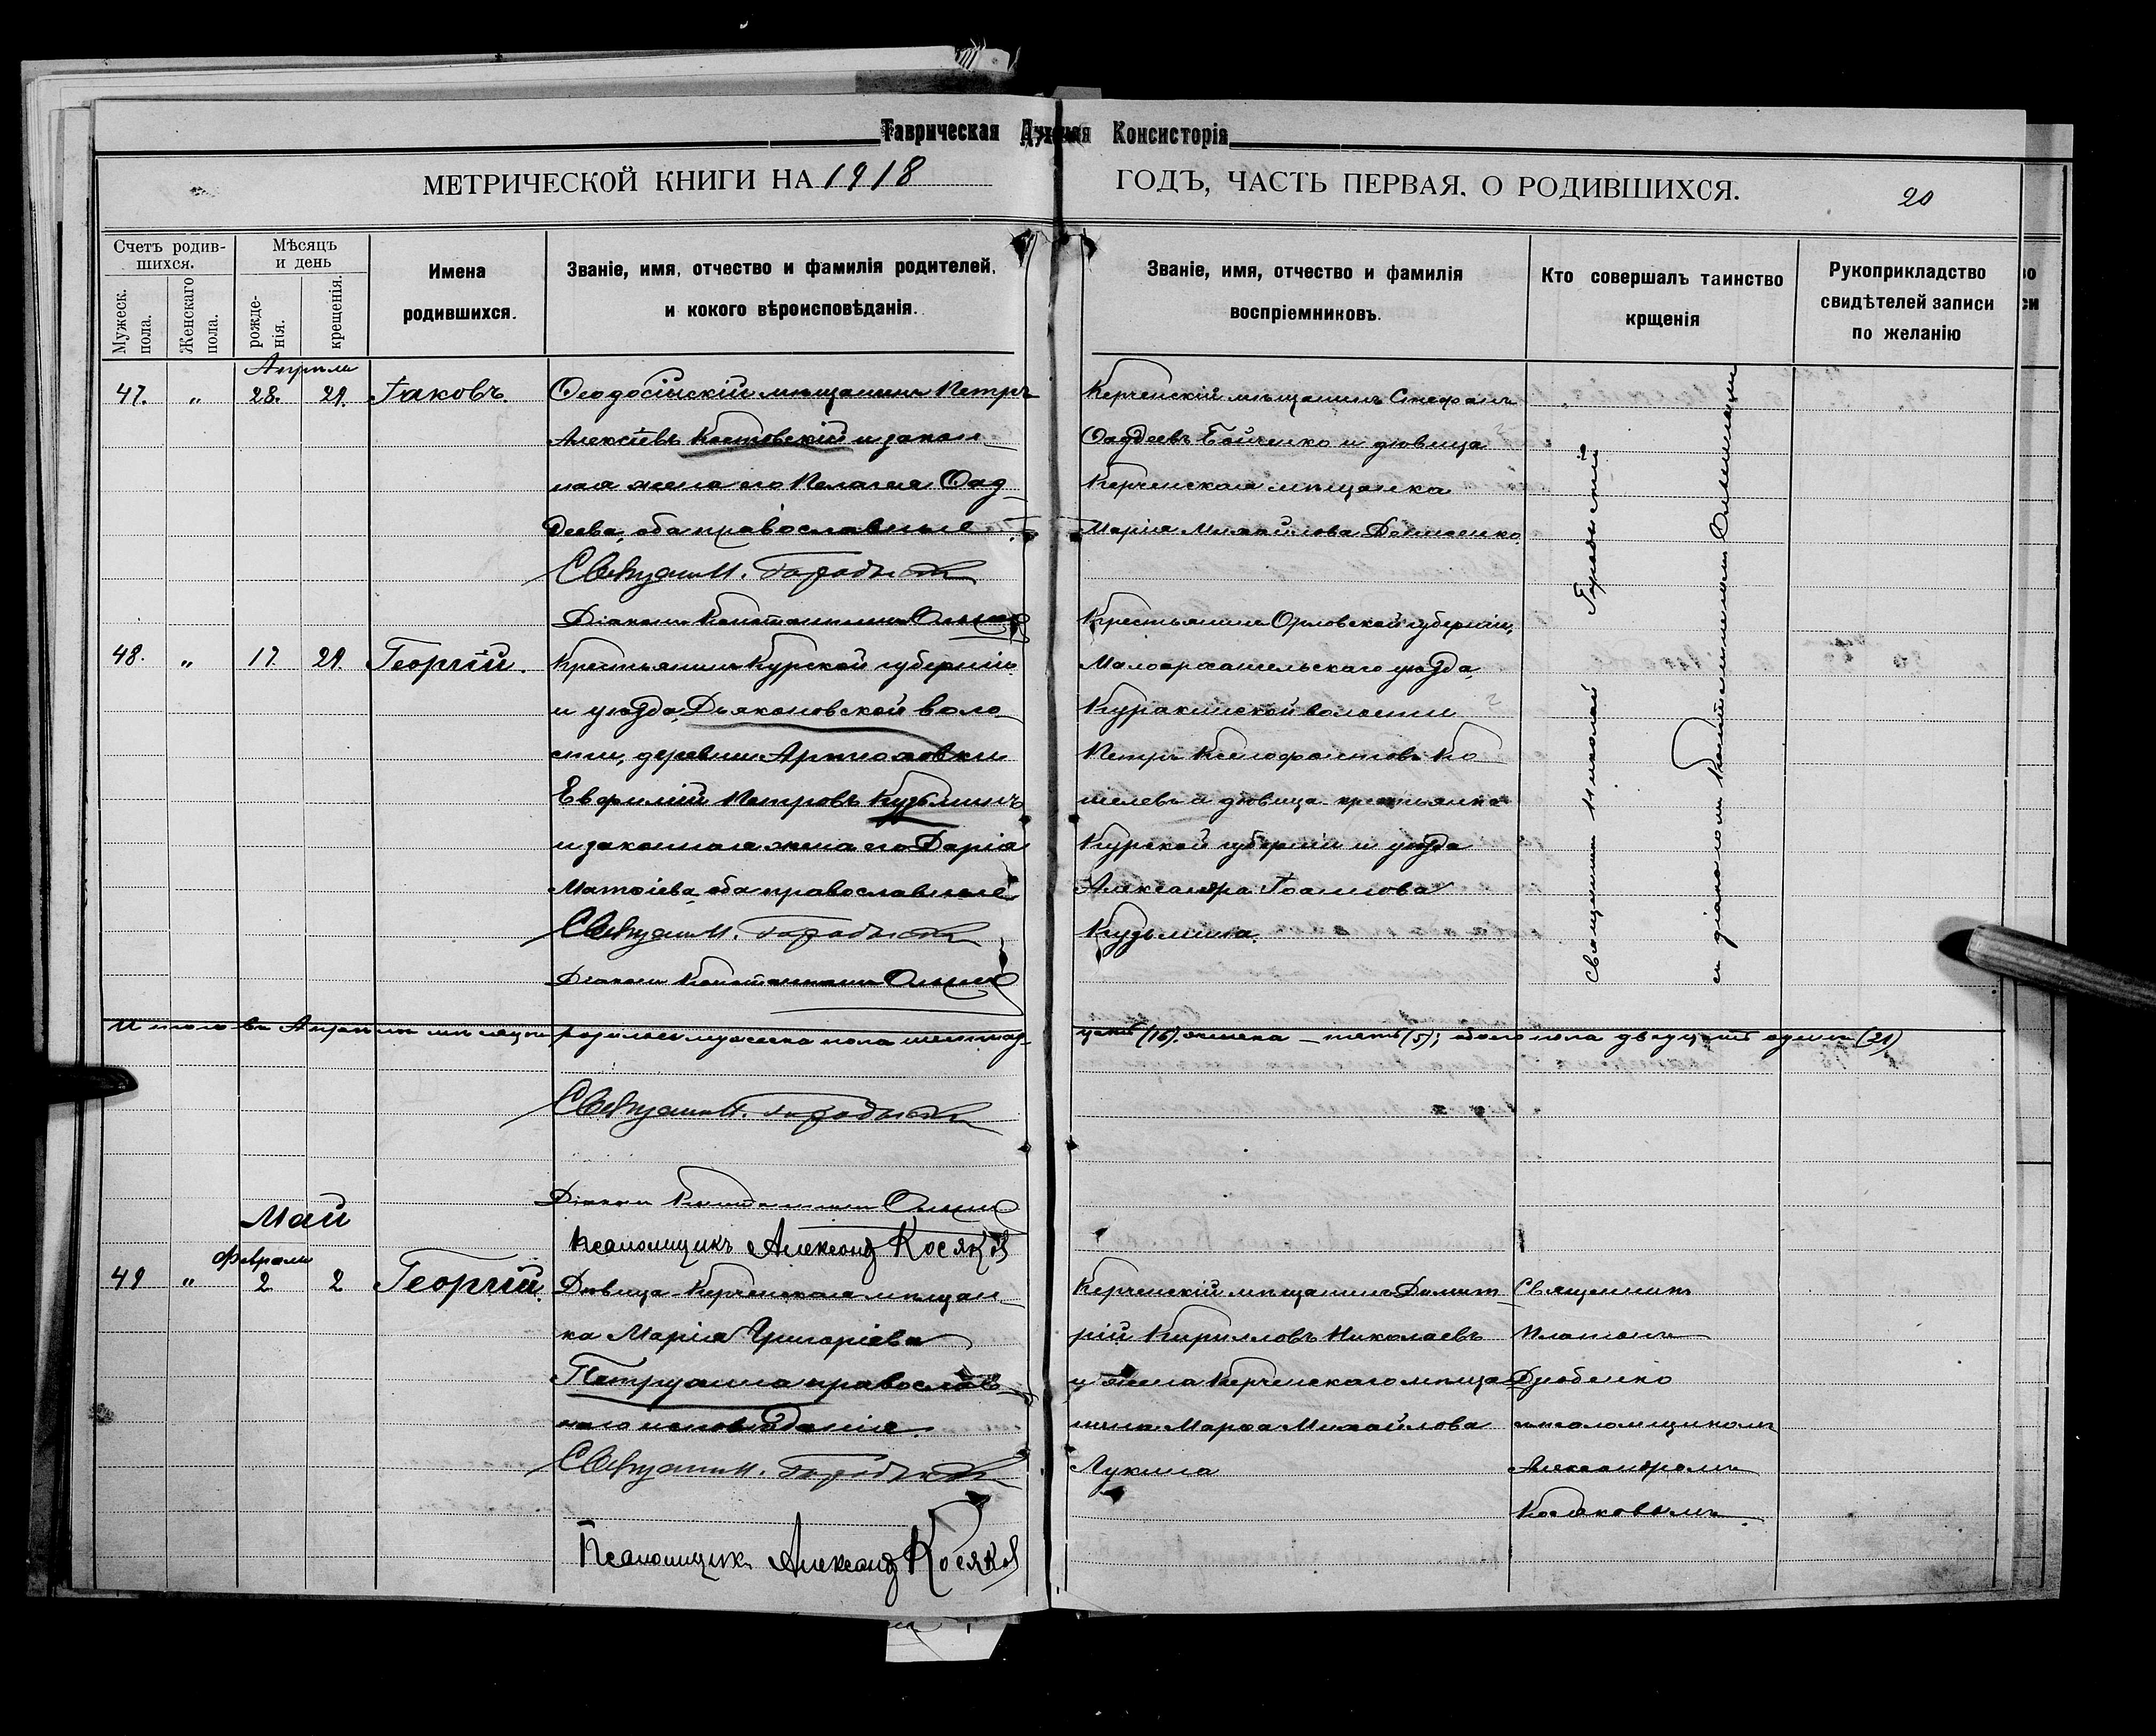 Таврическая Духовная Консисторія
МЕТРИЧЕСКОЙ КНИГИ НА 1918 ГОДЪ, ЧАСТЬ ПЕРВАЯ, О РОДИВШИХСЯ.
20
Счетъ родив-
шихся.
Мужеск.
пола.
Женскаго
пола.
Мѣсяцъ
и день
рожде-
нія.
крещенія.
Имена
родившихся.
Званіе, имя, отчество и фамилія родителей,
и кокого вѣроисповѣданія.
Званіе, имя, отчество и фамилія
воспріемниковъ.
Кто совершалъ таинство
крщенія
Рукоприкладство
свидѣтелей записи
по желанію
Апрѣль
47. " 28. 29. Іаковъ.
Ѳеодосійскій мѣщанинъ Петръ
Алексѣевъ Костовскій и закон-
ная жена его Пелагея Ѳад-
деева, оба православные
Свящ. Н. Городыскій
Діаконъ Константинъ
Керченскій мѣщанинъ Стефанъ
Ѳаддеевъ Бойченко и дѣвица
Керченская мѣщанка
Марія Михайлова
48. " 17. 29. Георгій.
Крестьянинъ Курской губерніи
и уѣзда, Дьяконовской воло-
сти, деревни
Петровъ Кузьминъ
и законная жена его Дарія
Матѳіева, оба православные
Свящ. Н. Городыскій
Діаконъ Константинъ
Крестьянинъ Орловской губерніи,
Малоархангельскаго уѣзда,
Куракинской волости
Петръ Ксенофонтовъ Ко-
шелевъ и дѣвица крестьянка
Курской губерніи и уѣзда
Александра Іоаннова
Кузьмина.
Священникъ Николай Городыскій
съ діакономъ Константиномъ
Итого въ Апрѣлѣ мѣсяцѣ родилось мужеска пола шестнад-
цать (16), женска – пять (5); обоего пола двадцать одинъ (21)
Свящ. Н. Городыскій
Діаконъ Константинъ
Псаломщикъ Александ Косяковъ
Май
Февраля
49 " 2 2 Георгій.
Дѣвица Керченская мѣщан-
ка Марія Григоріева
православ-
наго исповѣданія.
Свящ. Н. Городыскій
Псаломщик Александ Косяков
Керченскій мѣщанинъ Димит-
рій Кирилловъ Николаевъ
и жена Керченскаго мѣща-
нина Марѳа Михайлова
Лукина
Священникъ
Платонъ
псаломщикомъ
Александромъ
Косяковымъ.